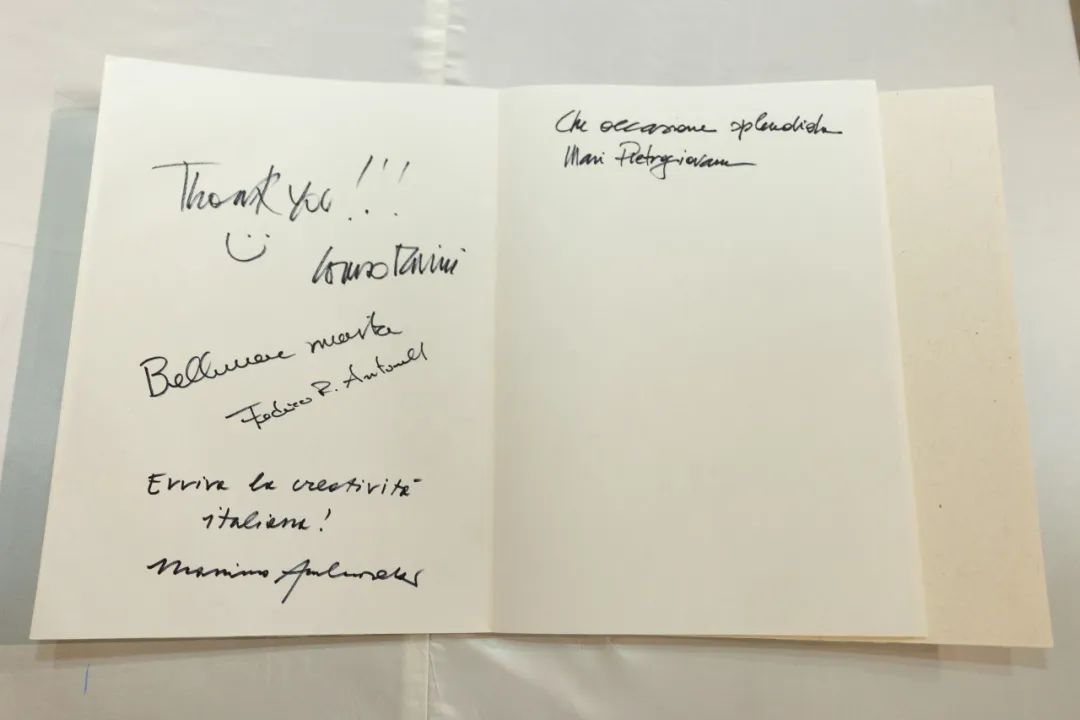 Thank you!!!
Bellissima mostra
Federico R. Antonelli
Evviva la creatività
italiana!
Massimo
Che occasione splendida
Mari Pietrogiovanna